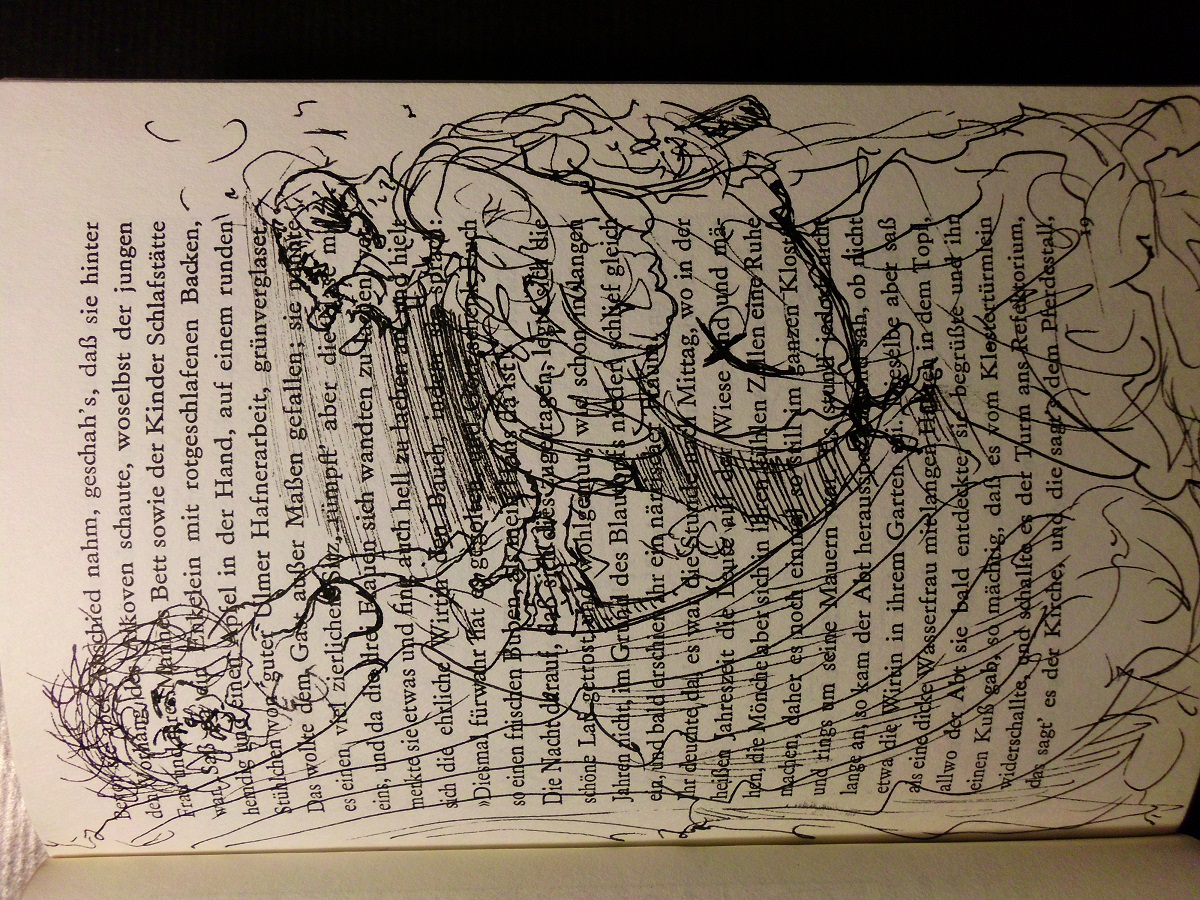 Bevor sie aber Abschied nahm, geschah's, daß sie hinter
den Vorhang des Alkoven schaute, woselbst der jungen
Frau und ihres Mannes Bett sowie der Kinder Schlafstätte
war. Saß da ein Enkelein mit rotgeschlafenen Backen,
hemdig und einen Apfel in der Hand, auf einem runden
Stühlchen von guter Ulmer Hafnerarbeit, grünverglaset.
Das wollte dem Gast außer Maßen gefallen; sie nannte
es einen viel zierlichen Sitz, rümpft' aber die Nase mit
eins, und da die drei Frauen sich wandten zu lachen, ver-
merkte sie etwas und fing auch hell zu lachen an, und hielt
sich die ehrliche Wirtin den Bauch, indem sie sprach:
»Diesmal fürwahr hat es gegolten! Gott schenk Euch
so einen frischen Buben, als mein Hans da ist!«
Die Nacht darauf, daß sich dies zugetragen, legte sich die
schöne Lau getrost und wohlgemut, wie schon in langen
Jahren nicht, im Grund des Blautopfs nieder, schlief gleich
ein, und bald erschien ihr ein närrischer Traum.
Ihr deuchte da, es war die Stunde nach Mittag, wo in der
heißen Jahreszeit die Leute auf der Wiese sind und mä-
hen, die Mönche aber sich in ihren kühlen Zellen eine Ruhe
machen, daher es noch einmal so still im ganzen Kloster
und rings um seine Mauern war. Es stund jedoch nicht
lange an, so kam der Abt herausspaziert und sah, ob nicht
etwa die Wirtin in ihrem Garten sei. Dieselbe aber saß
als eine dicke Wasserfrau mit langen Haaren in dem Topf,
allwo der Abt sie bald entdeckte, sie begrüßte und ihr
einen Kuß gab, so mächtig, daß es vom Klostertürmlein
widerschallte, und schallte es der Turm ans Refektorium,
das sagt' es der Kirche, und die sagt's dem Pferdestall,
19